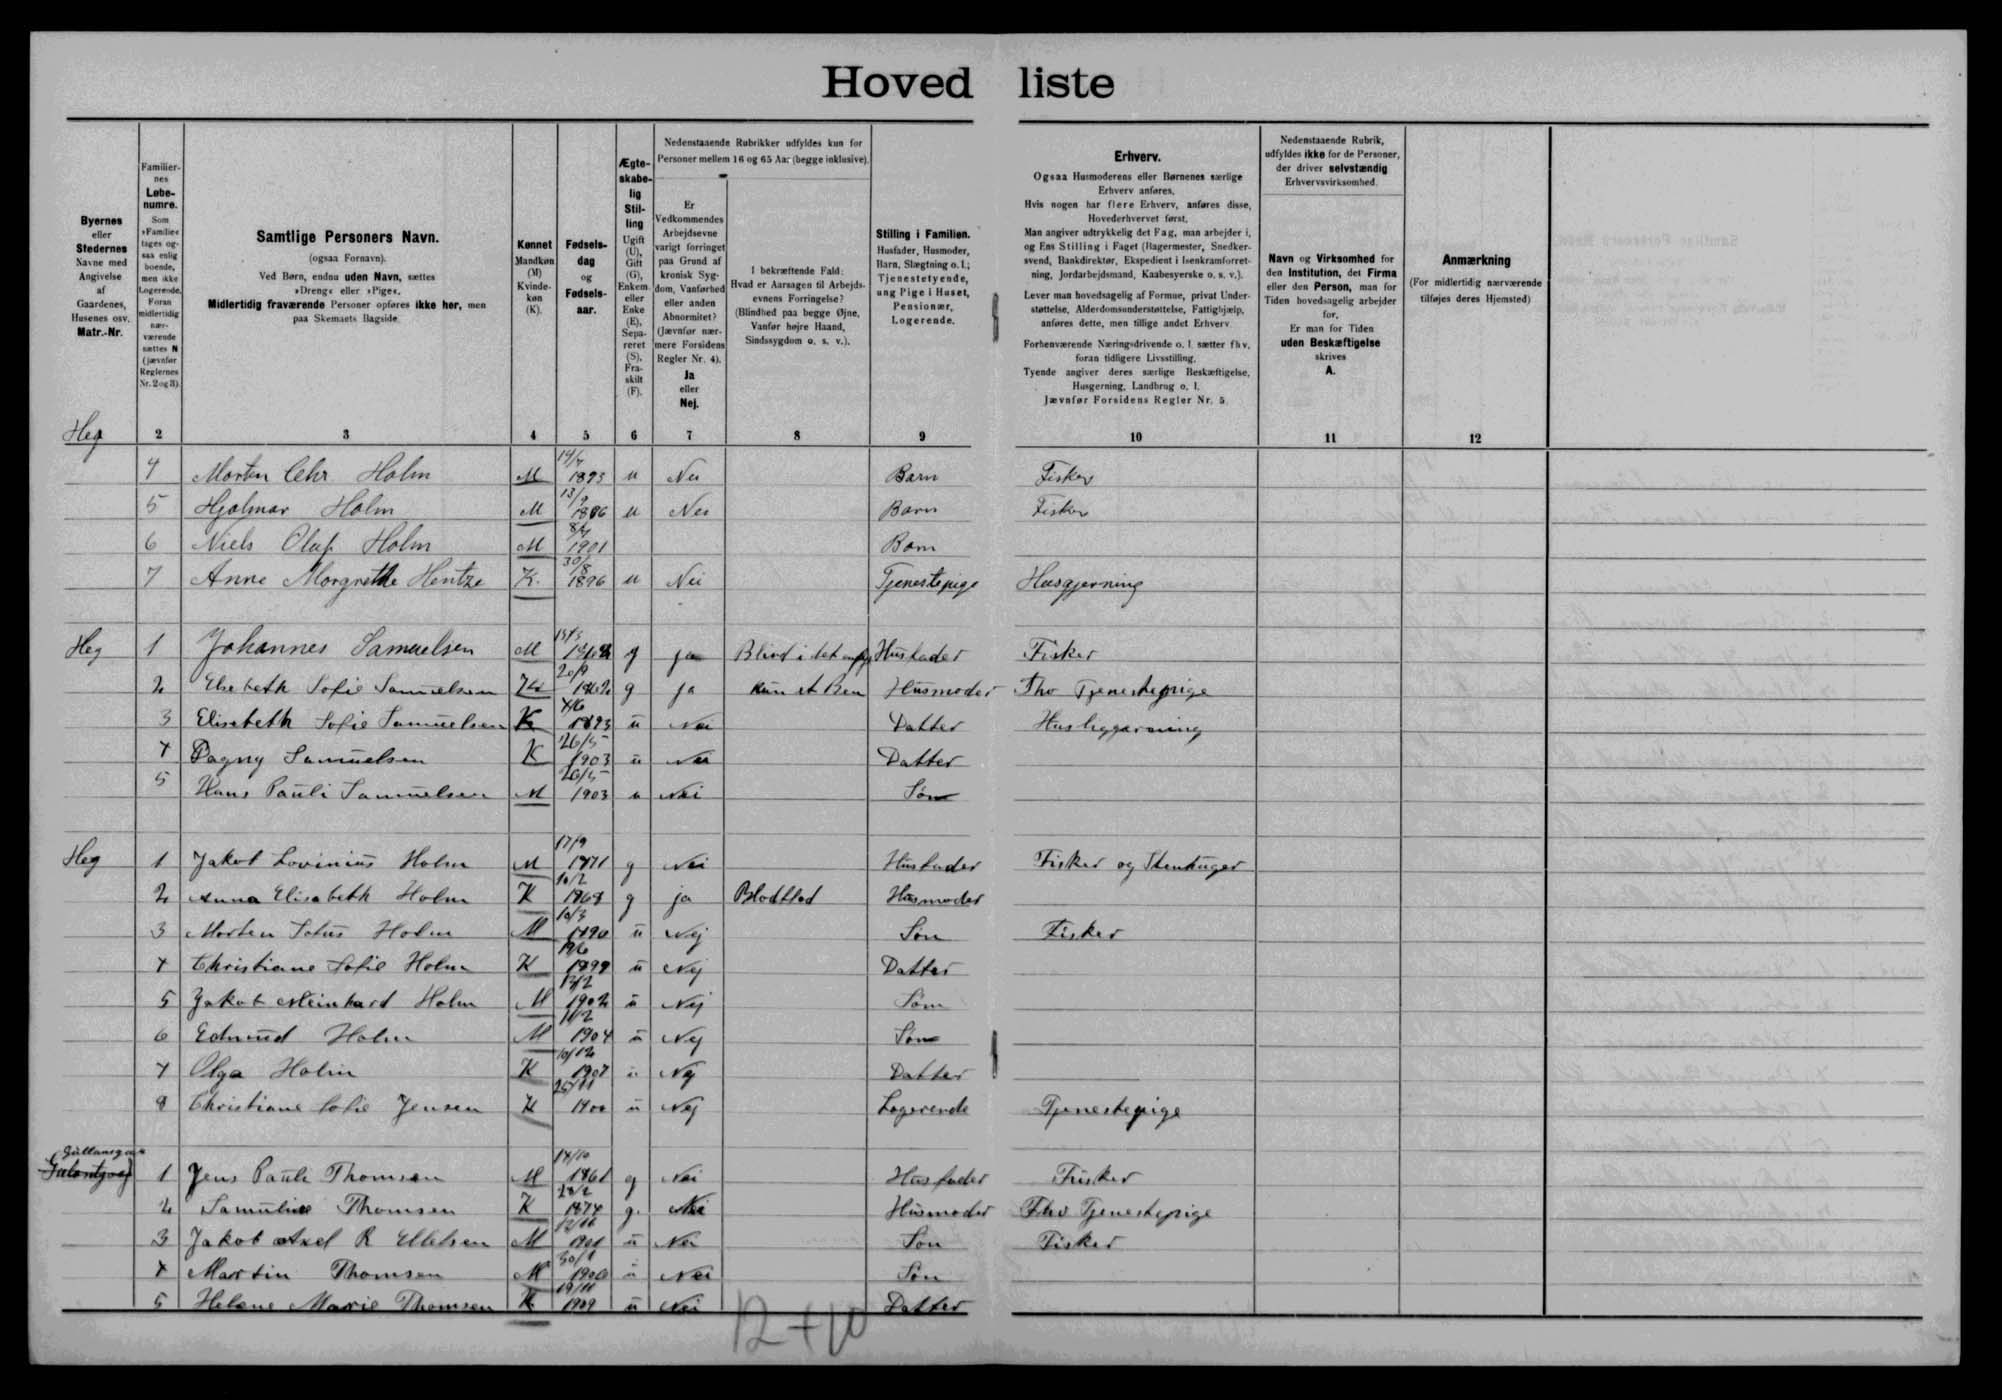 Hoved liste
Byernes
eller
Stedernes
Navne med
Angivelse
af
Gaardenes,
Husenes osv.
Matr.-Nr.
Familier-
nes
Løbe-
numre.
Som
»Familie«
tages og-
saa enlig
boende,
men ikke
Logerende.
Foran
midlertidig
nær-
værende
sættes N
(jævnfør
Reglernes
Nr. 2 og 3).
Samtlige Personers Navn.
(ogsaa Fornavn).
Ved Børn, endnu uden Navn, sættes
»Dreng« eller »Pige«.
Midlertidig fraværende Personer opføres ikke her, men
paa Skemaets Bagside.
Kønnet
Mandkøn
(M)
Kvinde-
køn
(K).
Fødsels-
dag
og
Fødsels-
aar.
Ægte-
skabe-
lig
Stil-
ling
Ugift
(U),
Gift
(G),
Enkem.
eller
Enke
(E),
Sepa-
reret
(S),
Fra-
skilt
(F).
Nedenstaaende Rubrikker udfyldes kun for
Personer mellem 16 og 65 Aar (begge inklusive).
Er
Vedkommendes
Arbejdsevne
varigt forringet
paa Grund af
kronisk Syg-
dom, Vanførhed
eller anden
Abnormitet?
(Jævnfør nær-
mere Forsidens
Regler Nr. 4).
Ja
eller
Nej.
I bekræftende Fald:
Hvad er Aarsagen til Arbejds-
evnens Forringelse?
(Blindhed paa begge Øjne,
Vanfør højre Haand,
Sindssygdom o. s. v.).
Stilling i Familien.
Husfader, Husmoder,
Barn, Slægtning o. l.;
Tjenestetyende,
ung Pige i Huset,
Pensionær,
Logerende.
Erhverv.
Ogsaa Husmoderens eller Børnenes særlige
Erhverv anføres.
Hvis nogen har flere Erhverv, anføres disse,
Hovederhvervet først.
Man angiver udtrykkelig det Fag, man arbejder i,
og Ens Stilling i Faget (Bagermester, Snedker-
svend, Bankdirektør, Ekspedient i Isenkramforret-
ning, Jordarbejdsmand, Kaabesyerske o. s. v.).
Lever man hovedsagelig af Formue, privat Under-
støttelse, Alderdomsunderstøttelse, Fattighjælp,
anføres dette, men tillige andet Erhverv.
Forhenværende Næringsdrivende o. l. sætter fhv.
foran tidligere Livsstilling.
Tyende angiver deres særlige Beskæftigelse,
Husgerning, Landbrug o. l.
Jævnfør Forsidens Regler Nr. 5.
Nedenstaaende Rubrik,
udfyldes ikke for de Personer,
der driver selvstændig
Erhvervsvirksomhed.
Navn og Virksomhed for
den Institution, det Firma
eller den Person, man for
Tiden hovedsagelig arbejder
for.
Er man for Tiden
uden Beskæftigelse
skrives
A.
Anmærkning
(For midlertidig nærværende
tilføjes deres Hjemsted)
Heg 2 3 4 5 6 7 8 9 10 11 12
4 Morten Chr Holm M 14/7 1893 u Nei Barn Fisker
5 Hjalmar Holm M 13/9 1896 u Nei Barn Fisker
6 Niels Oluf Holm M 1901 Barn
7 Anne Morgrethe Hentze K. 30/8 1896 u Nei Tjenestepige Husgjerning
Heg 1 Johannes Samuelsen M g ja Blind i det Husfader Fisker
2 Elsebeth Sofie Samuelsen K 20/9 1862 g ja kun et Ben Husmoder Fhv Tjenestepige
3 Elisebeth Sofie Samuelsen K 1893 u Nei Datter
4 Dagny Samuelsen K 26/5 1903 u Nei Datter
5 Hans Pauli Samuelsen M 26/5 1903 u Nei Søn
Heg 1 Jakob Lovinius Holm M 17/9 1871 g Nei Husfader Fisker og Stenhuger
2 Anna Elisabeth Holm K 10/2 1868 g ja Blodtlod Husmoder
3 Morten Holm M 10/3 1890 u Nej Søn Fisker
4 Christiane Sofie Holm K 1899 u Nej Datter
5 Jakob Meinhard Holm M 1902 u Nej Søn
6 Edmund Holm M 11/2 1904 u Nej Søn
7 Olga Holm K 10/12 1907 u Nej Datter
8 Christiane Sofie Jensen K 25/11 1900 u Nej Logerende Tjenestepige
1 Jens Pauli Thomsen M 14/10 1861 g Nei Husfader Fisker
2 Samuline Thomsen K 28/2 1874 g. Nei Husmoder Fhv Tjenestepige
3 Jakob Axel R Ellefsen M 12/11 1901 u Nei Søn Fisker
4 Martin Thomsen M 30/1 1906 u Nei Søn
5 Helene Marie Thomsen K 19/11 1909 u Nei Datter
12 + 10